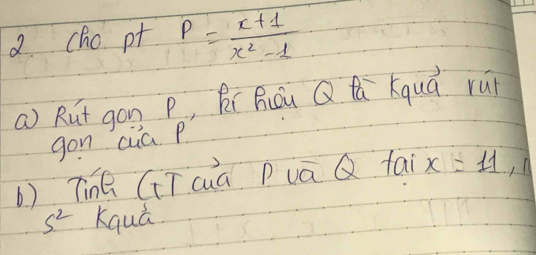 2. Cho pt P = \frac{x+1}{x^2-1}
a) Rút gọn P, kí hiệu Q là kquả rút
gọn của P
b) Tính GT của P và Q tại x = 11,
s² kquả